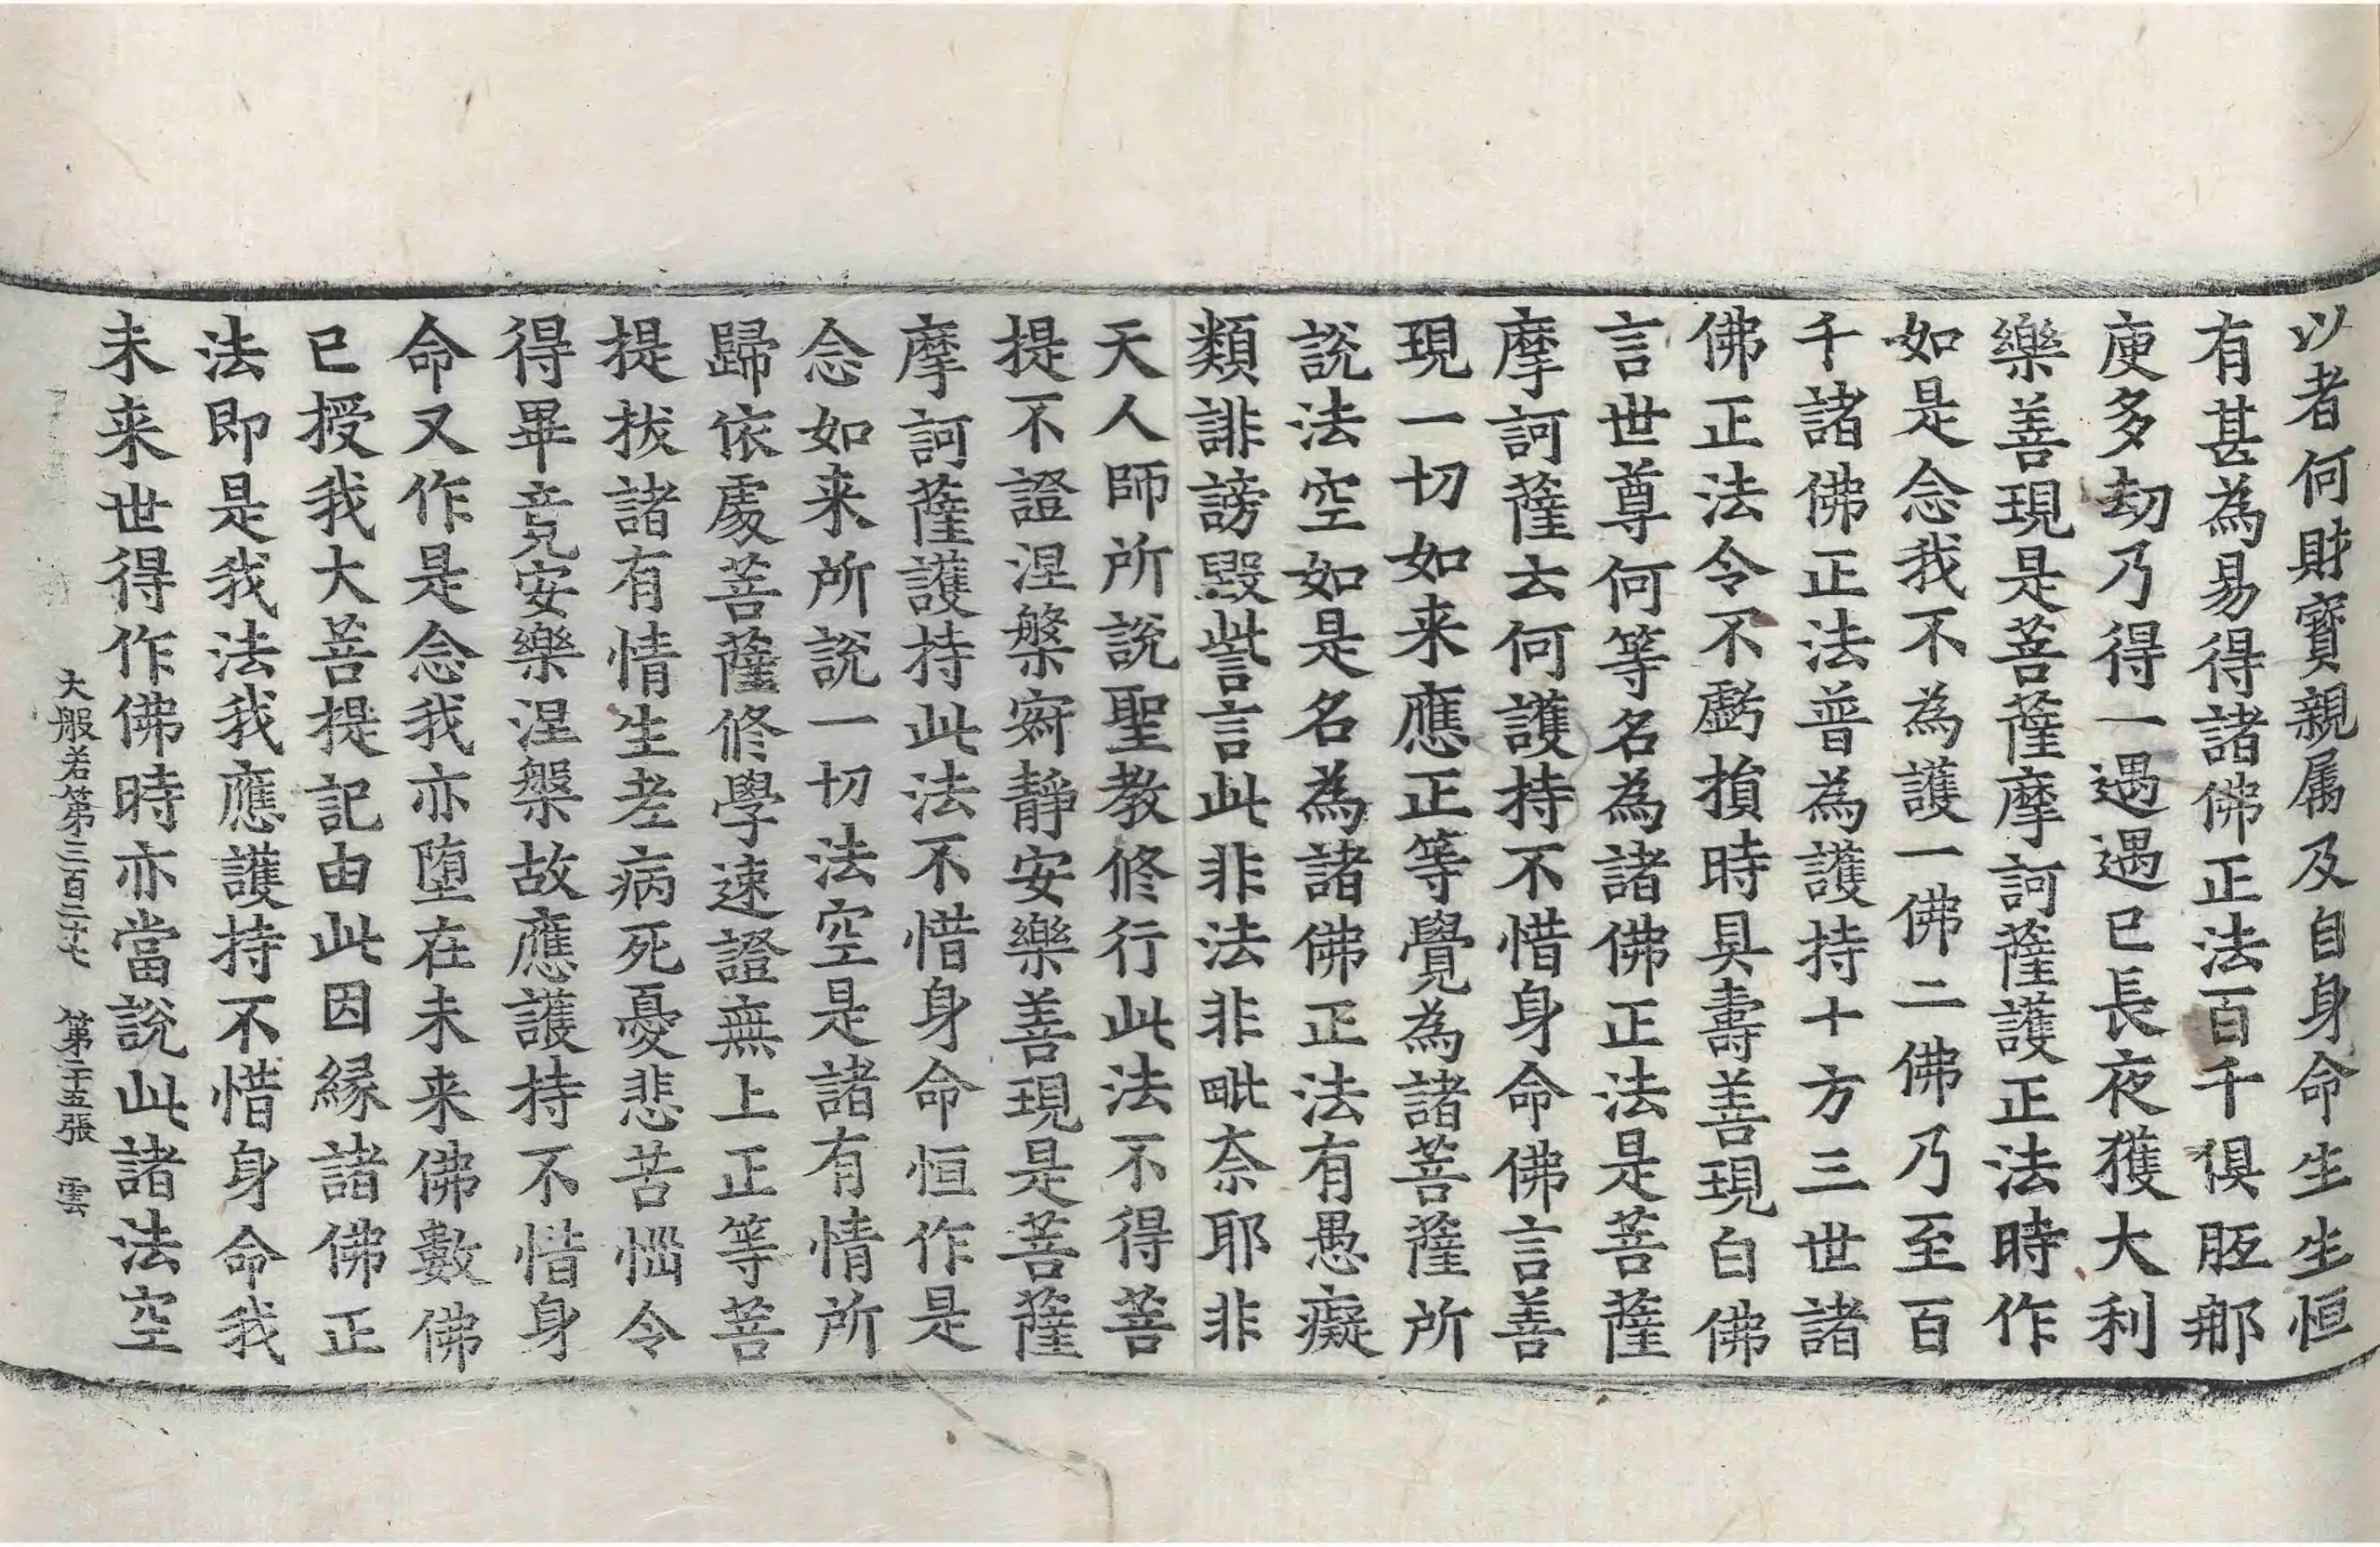 以者何財寶親属及自身命生生恒
有甚為易得諸佛正法百千俱胝那
庾多劫乃得一遇遇已長夜獲大利
樂善現是菩薩摩訶薩護正法時作
如是念我不為護一佛二佛乃至百
千諸佛正法普為護持十方三世諸
佛正法令不虧損時具壽善現白佛
言世尊何等名為諸佛正法是菩薩
摩訶薩云何護持不惜身命佛言善
現一切如来應正等覺為諸菩薩所
說法空如是名為諸佛正法有愚癡
類誹謗毀呰言此非法非毗奈耶非
天人師所說聖教修行此法不得菩
提不證涅槃寂靜安樂善現是菩薩
摩訶薩護持此法不惜身命恒作是
念如来所說一切法空是諸有情所
歸依處菩薩修學速證無上正等菩
提拔諸有情生老病死憂悲苦惱令
得畢竟安樂涅槃故應護持不惜身
命又作是念我亦墮在未来佛數佛
已授我大菩提記由此因緣諸佛正
法即是我法我應護持不惜身命我
未来世得作佛時亦當說此諸法空
大般若第三百二十七 第二十五張 雲